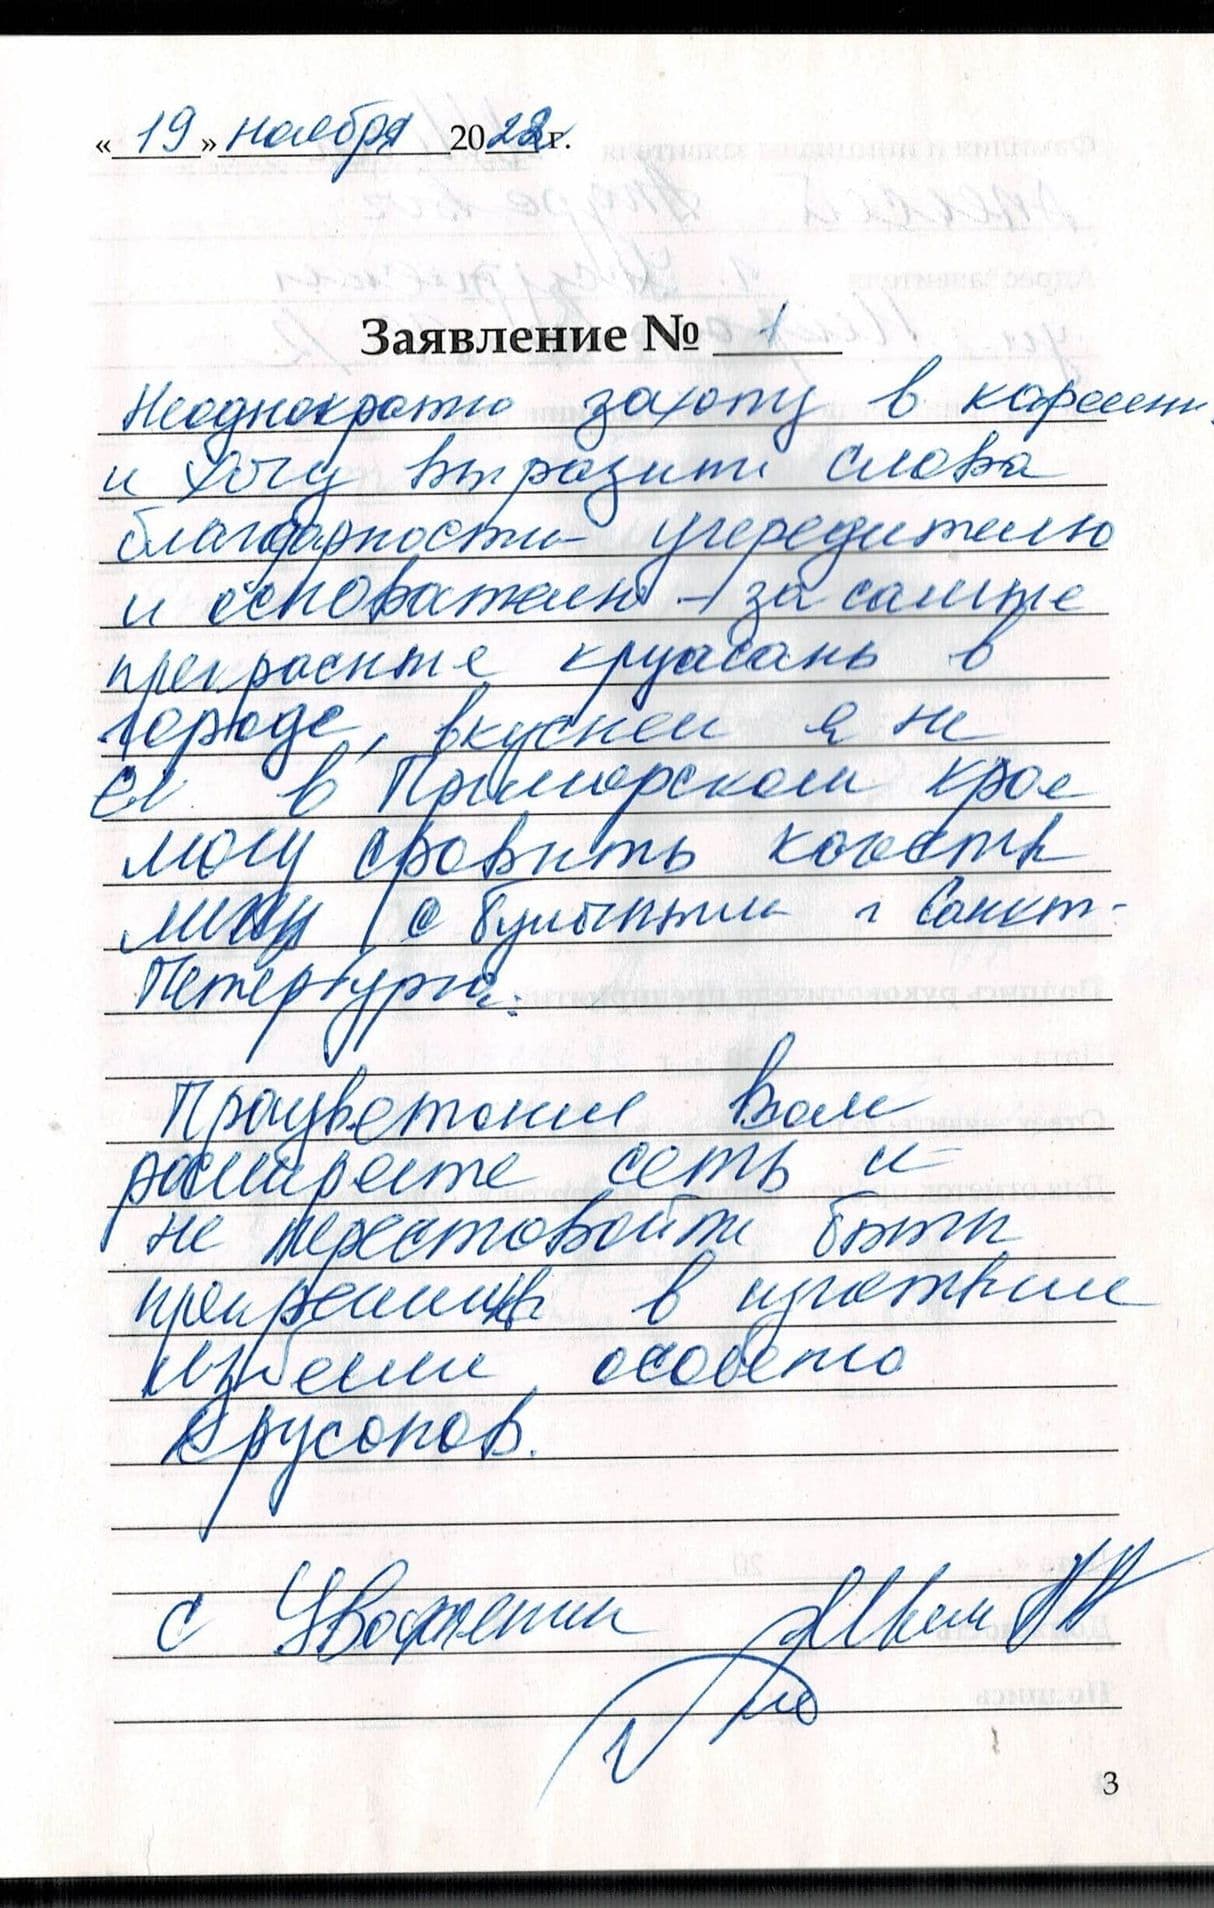 « 19 » ноября 2022 г.
Заявление № 1
Неоднократно захожу в кофейни
и хочу выразить слова
благодарности учередителю
и основателю — за самые
прекрасные круасаны в
городе, вкусней я не
ел в Приморском крае
могу сровнить качеств
могу с булочными г Санкт-
Петербурга.
Процветания Вам
расширяйте сеть и
не переставайте быть
в
особено
Крусанов.
с Уважением
3